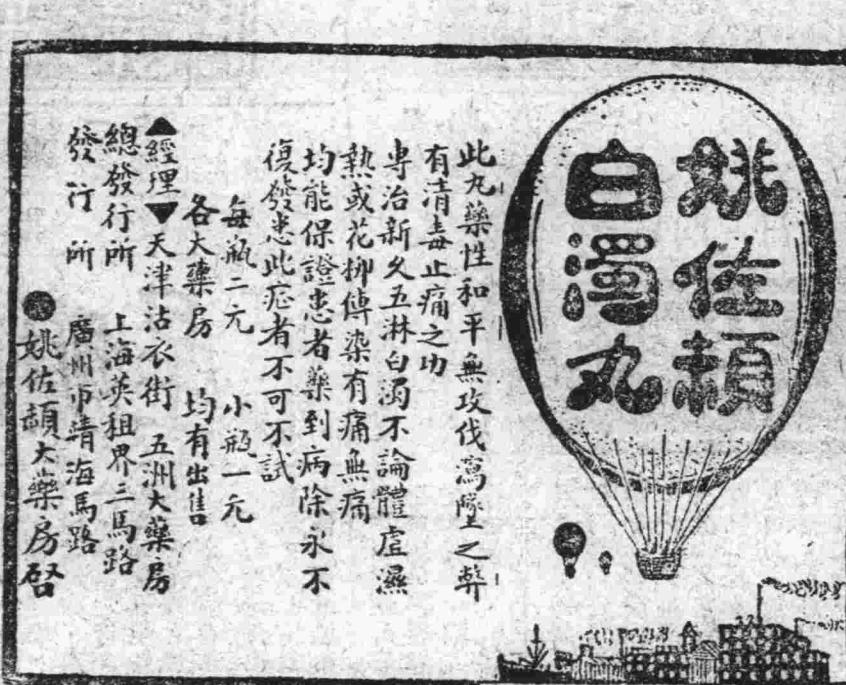 姚佐頛
白濁丸
此丸藥性和平無攻伐瀉墜之弊
有清毒止痛之功
專治新久五淋白濁不論體虛濕
熱或花柳傳染有痛無痛
均能保證患者藥到病除永不
復發患此症者不可不試
每瓶二元 小瓶一元
各大藥房 均有出售
▲經理▼天津沽衣街 五洲大藥房
總發行所 上海英租界三馬路
發行所 廣州市靖海馬路
姚佐頛大藥房啓